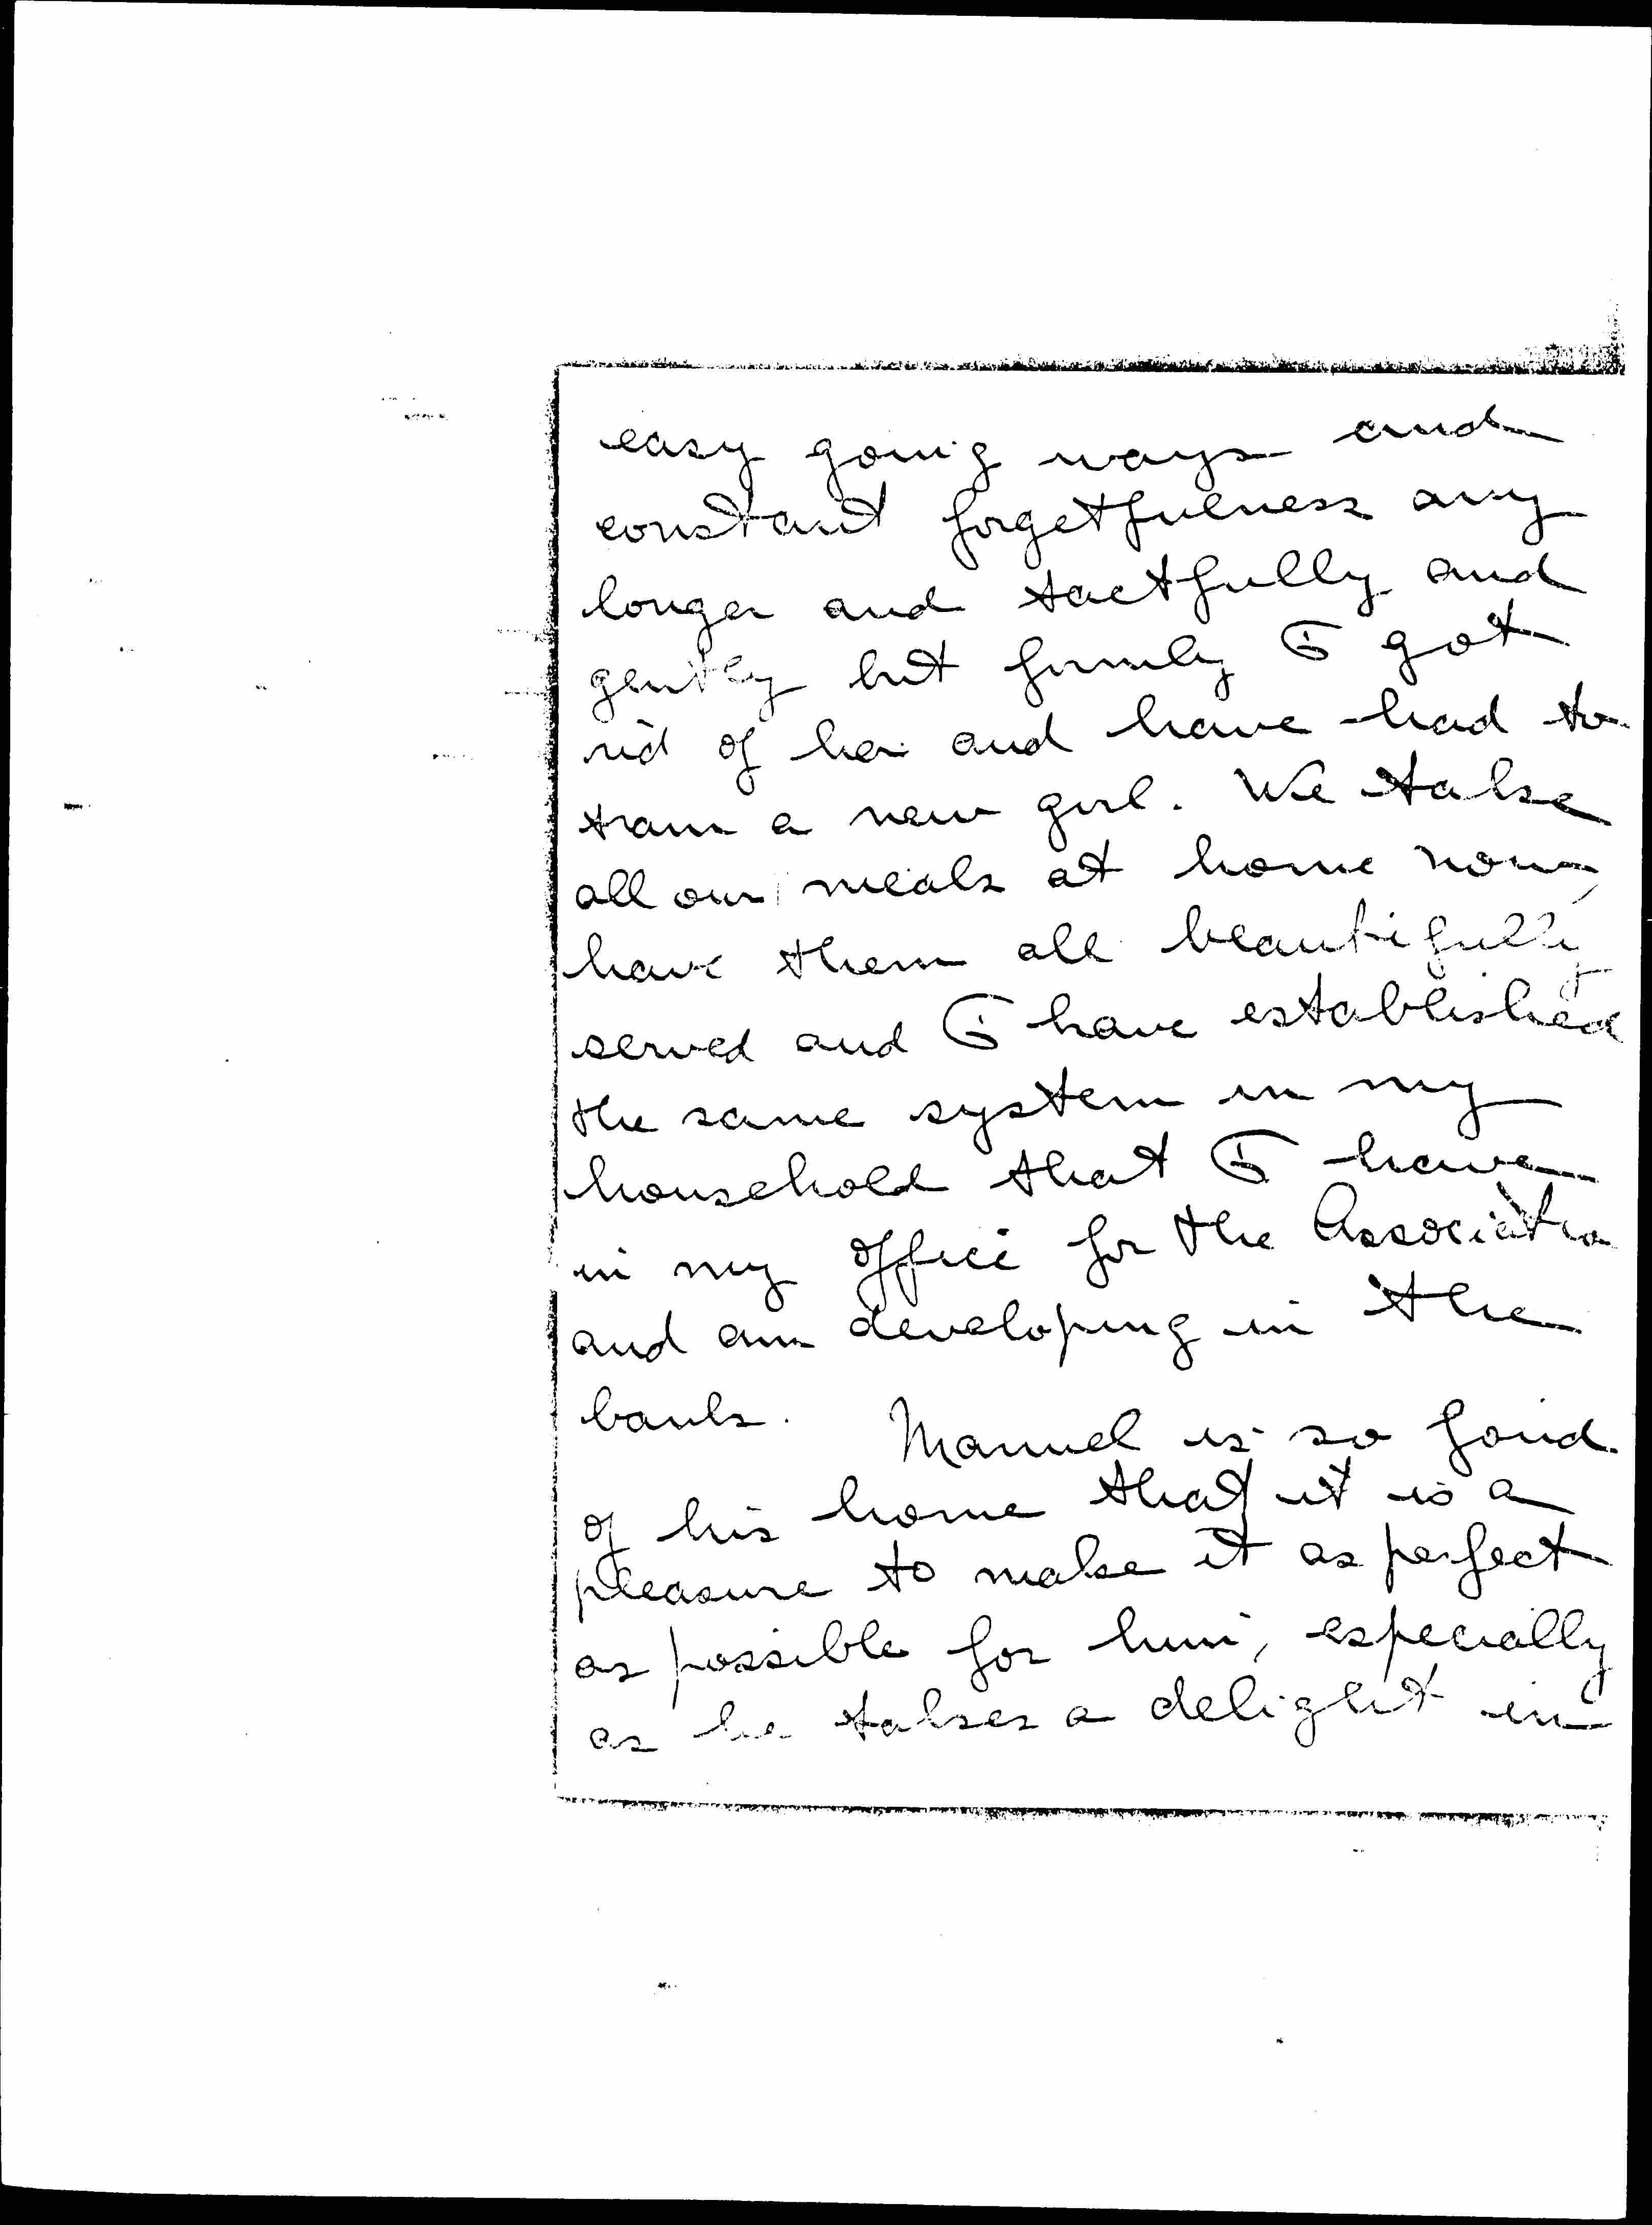 easy going ways and
constant forgetfulness any
longer and tactfully and
gently but firmly I got
rid of her and have had to
train a new girl. We take
all our meals at home now,
have them all beautifully
served and I have established
the same system in my
household that I have
in my office for the Associatio
and am developing in the
bank. Manuel is so fond
of his home that it is a
pleasure to make it as perfect
as possible for him, especially
as he takes a delight in